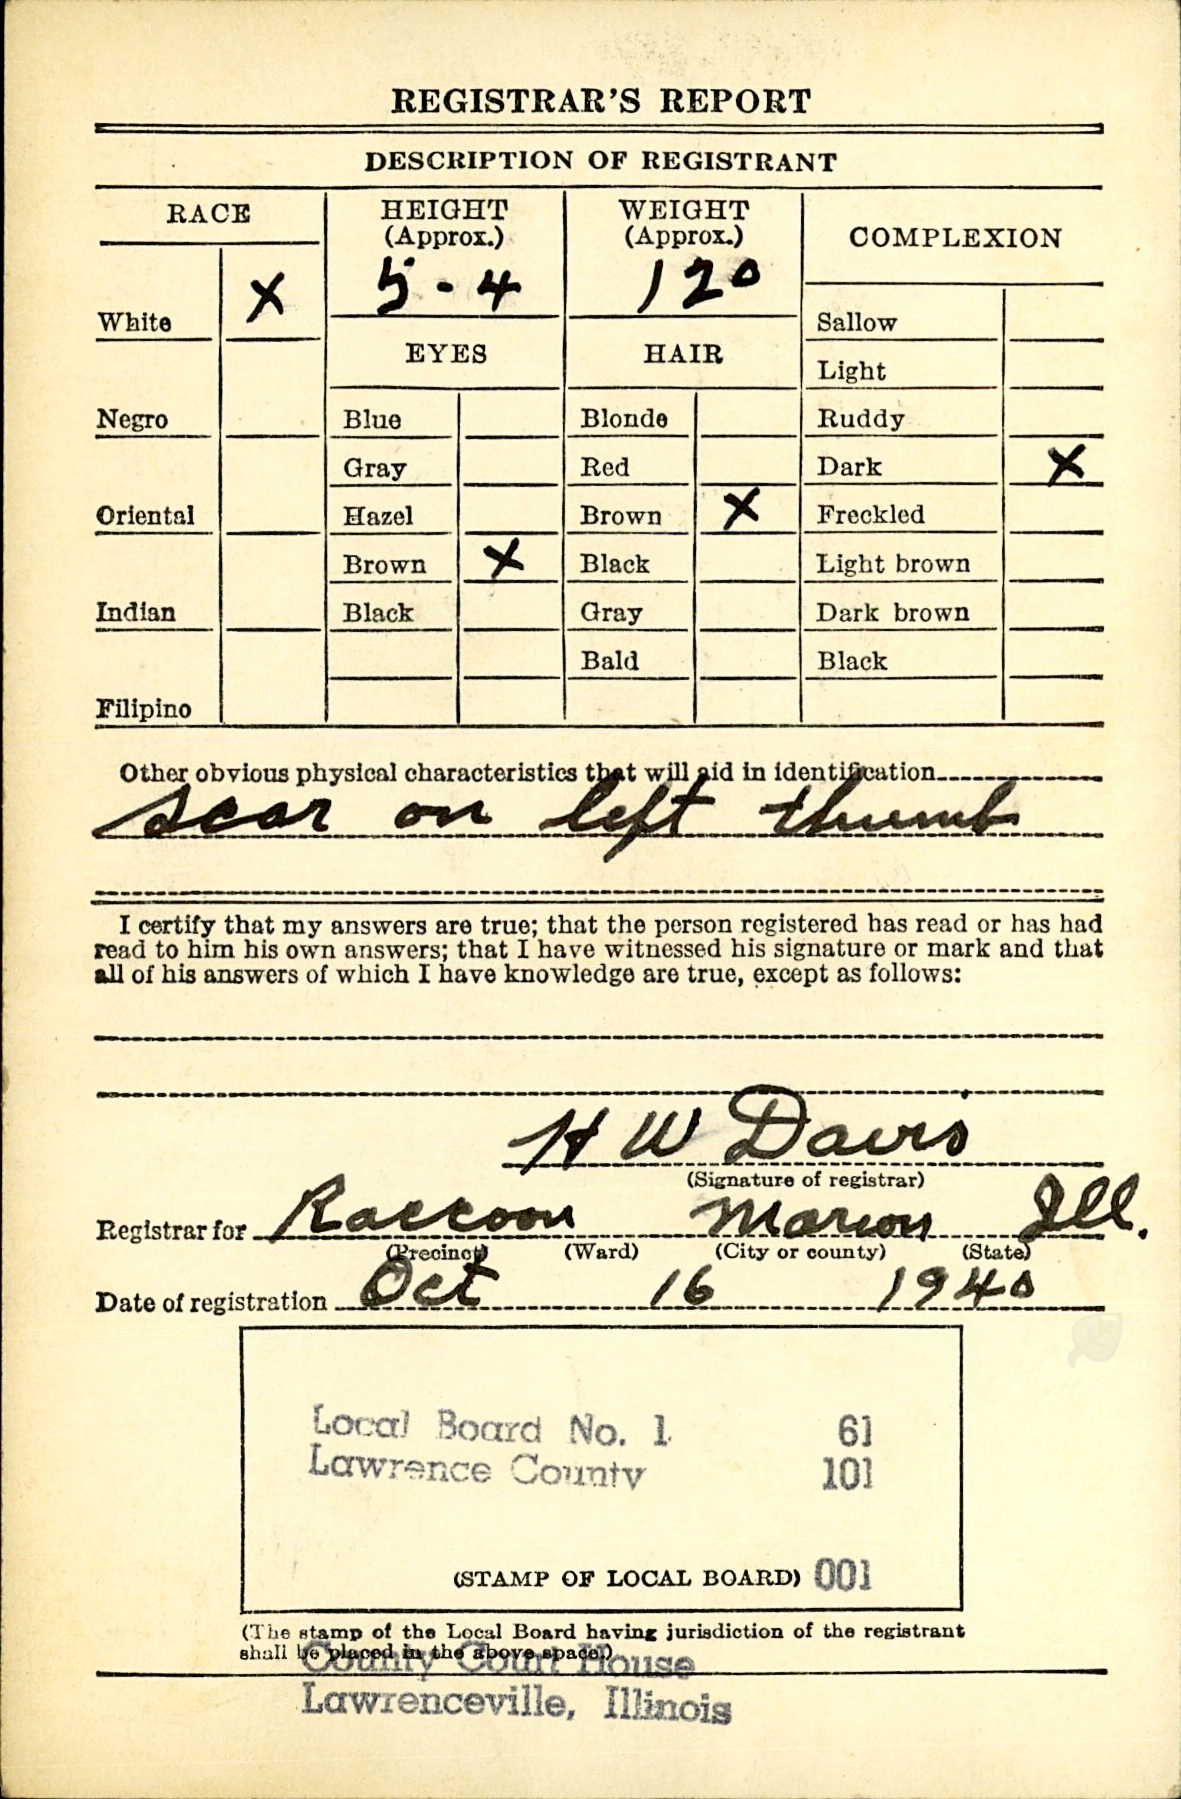 REGISTRAR'S REPORT
DESCRIPTION OF REGISTRANT
RACE
HEIGHT
(Approx.)
WEIGHT
(Approx.)
COMPLEXION
White X
5-4
120
Sallow
EYES
HAIR
Light
Negro
Blue
Blonde
Ruddy
Gray
Red
Dark X
Oriental
Hazel
Brown X
Freckled
Brown X
Black
Light brown
Indian
Black
Gray
Dark brown
Bald
Black
Filipino
Other obvious physical characteristics that will aid in identification
scar on left thumb
I certify that my answers are true; that the person registered has read or has had
read to him his own answers; that I have witnessed his signature or mark and that
all of his answers of which I have knowledge are true, except as follows:
H W Davis
(Signature of registrar)
Registrar for Raccoon Marion Ill.
(Precinct) (Ward) (City or county) (State)
Date of registration Oct 16 1940
Local Board No. 1 61
Lawrence County 101
(STAMP OF LOCAL BOARD) 001
(The stamp of the Local Board having jurisdiction of the registrant
shall be placed in the above space.)
County Court House
Lawrenceville, Illinois